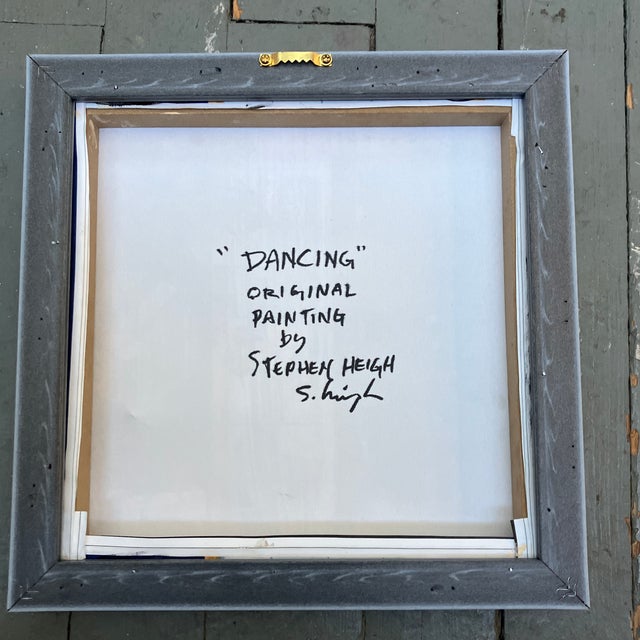 "DANCING"
ORIGINAL
PAINTING
by
STEPHEN HEIGH
S. Heigh